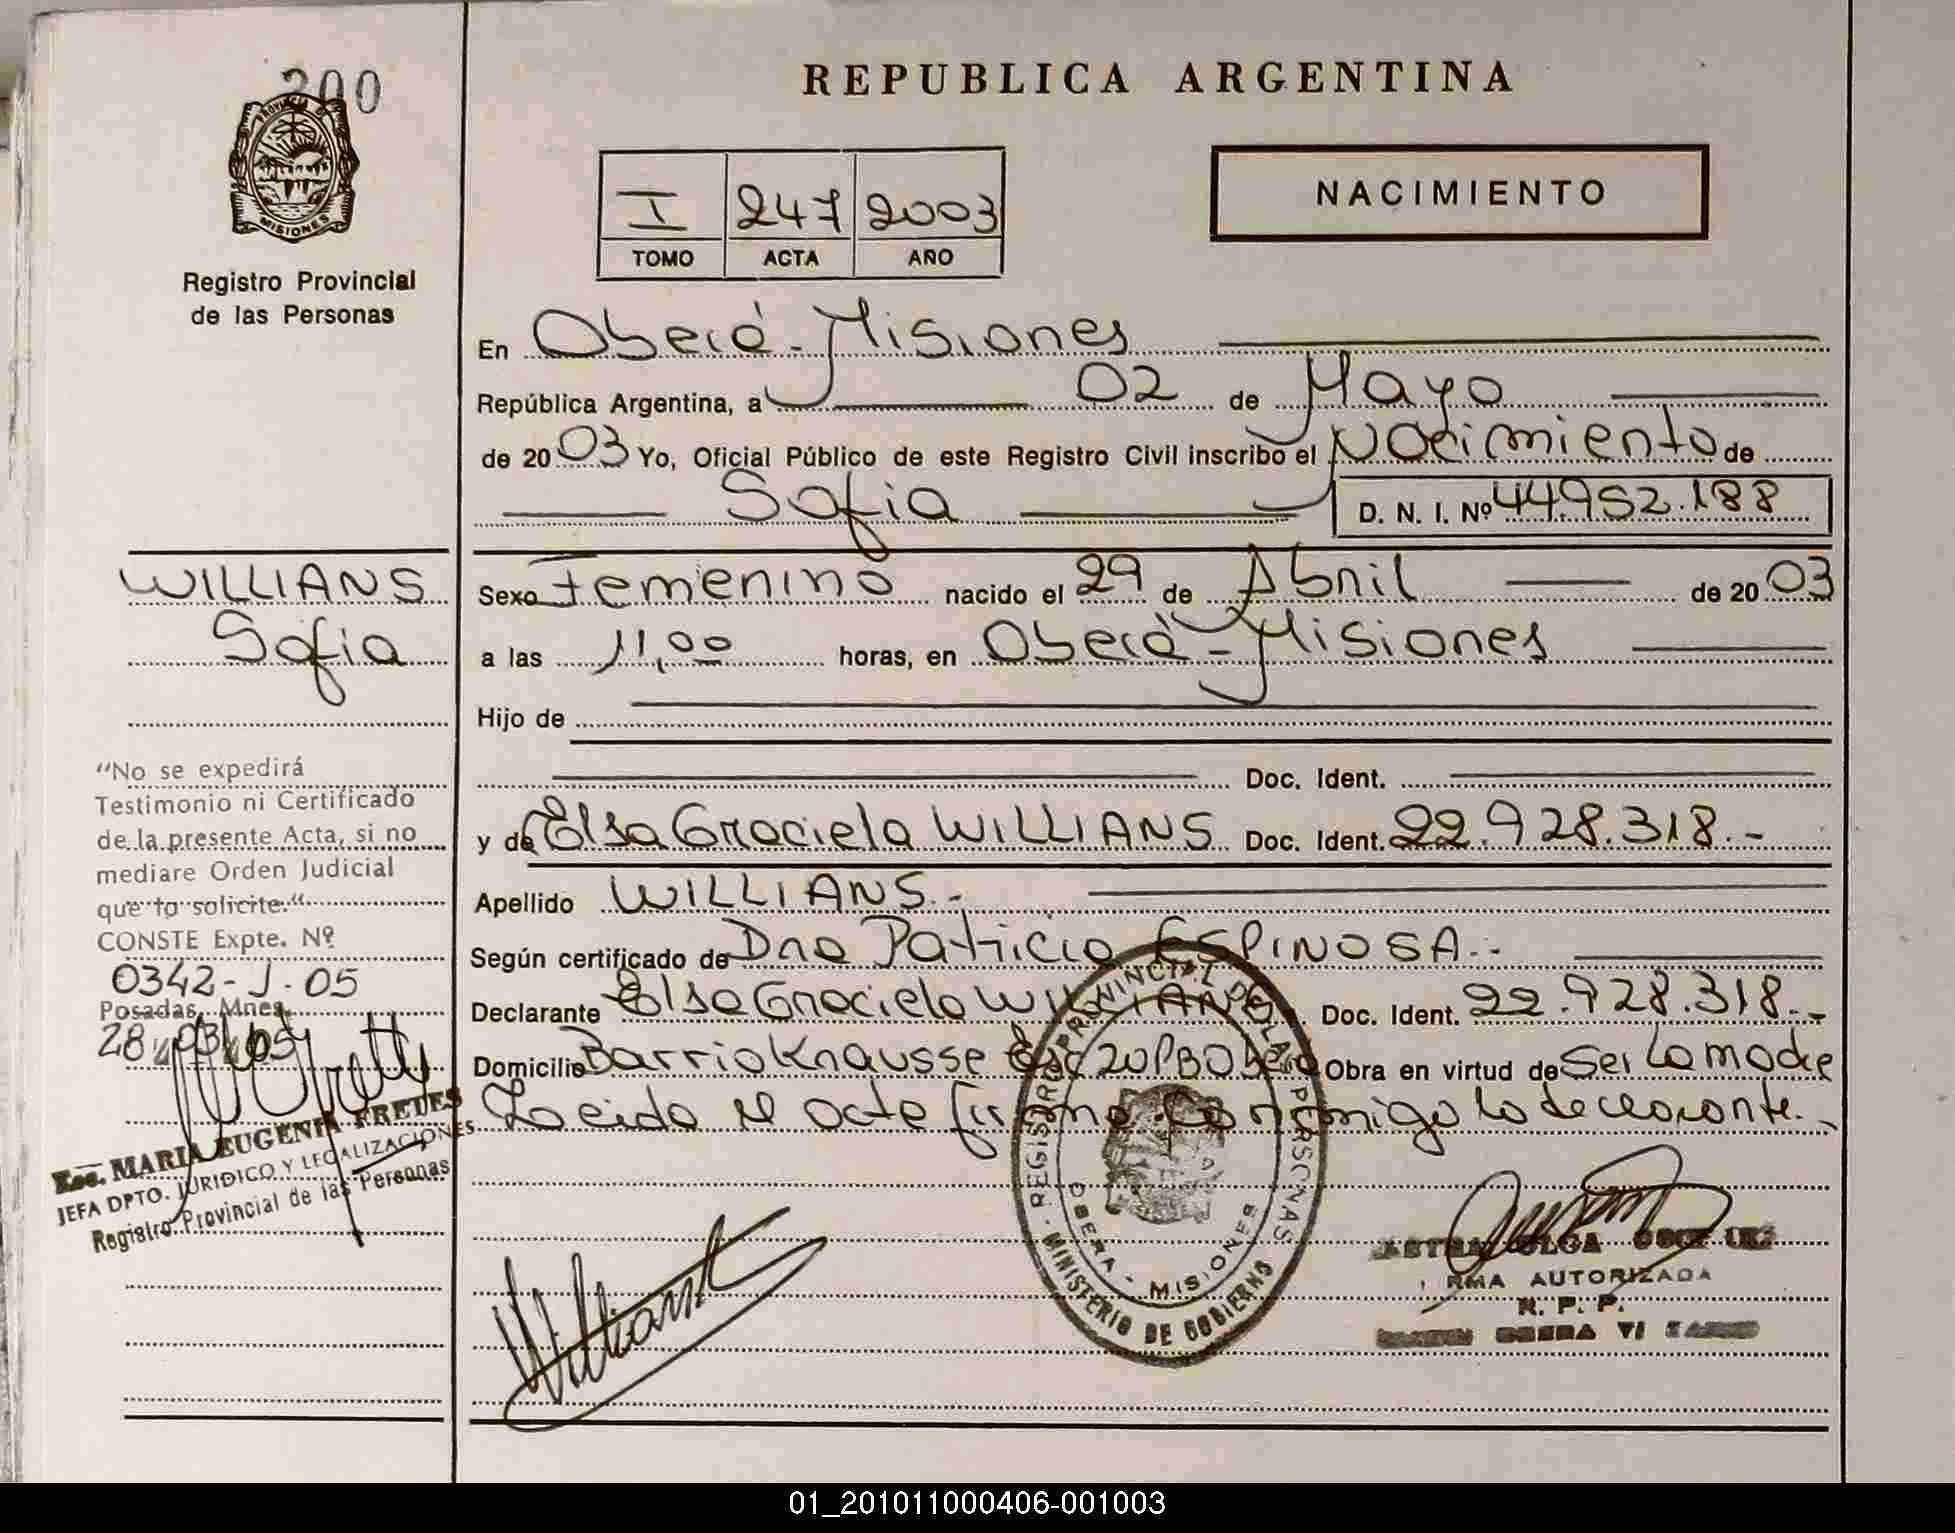 200
PROVINCIA DE
MISIONES
Registro Provincial
de las Personas
REPUBLICA ARGENTINA
I 247 2003
TOMO ACTA AÑO
NACIMIENTO
En Oberá - Misiones
República Argentina, a 02 de Mayo
de 2003 Yo, Oficial Público de este Registro Civil inscribo el Nacimiento de
Sofia D. N. I. Nº 44.952.188
WILLIANS
Sofia
Sexo Femenino nacido el 29 de Abril de 2003
a las 11,00 horas, en Oberá - Misiones
Hijo de
Doc. Ident.
y de Elsa Graciela WILLIANS Doc. Ident. 22.928.318.-
Apellido WILLIANS.-
Según certificado de Dra Patricia ESPINOSA.-
Declarante Elsa Graciela WILLIANS Doc. Ident. 22.928.318.-
Domicilio Barrio Knausse Esc 207 Obera Obra en virtud de Ser la madre
Leida el acta firma conmigo la declarante.-
"No se expedirá
Testimonio ni Certificado
de la presente Acta, si no
mediare Orden Judicial
que lo solicite."
CONSTE Expte. Nº
0342-J-05
Posadas, Mnes,
28 03 05
Esc. MARIA EUGENIA FRETES
JEFA DPTO. JURIDICO Y LEGALIZACIONES
Registro Provincial de las Personas
REGISTRO PROVINCIAL DE LAS PERSONAS
OBERA - MISIONES
MINISTERIO DE GOBIERNO
Willians
OLGA
FIRMA AUTORIZADA
R. P. P.
OBERA
01_201011000406-001003